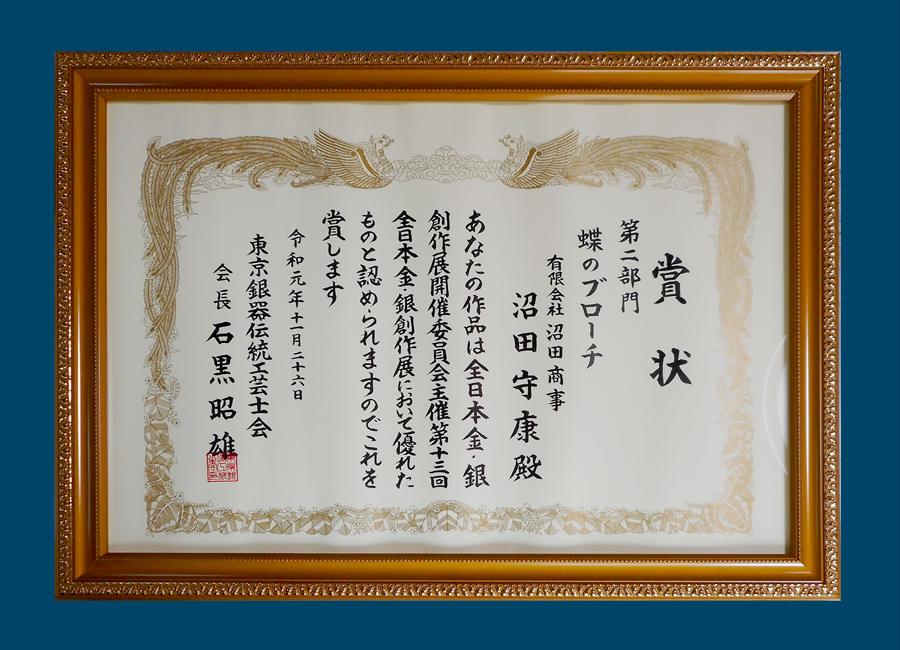 賞状
第二部門
蝶のブローチ
有限会社 沼田商事
沼田守康殿
あなたの作品は全日本金・銀
創作展開催委員会主催第十三回
全日本金・銀創作展において優れた
ものと認められますのでこれを
賞します
令和元年十一月二十六日
東京銀器伝統工芸士会
会長 石黒昭雄